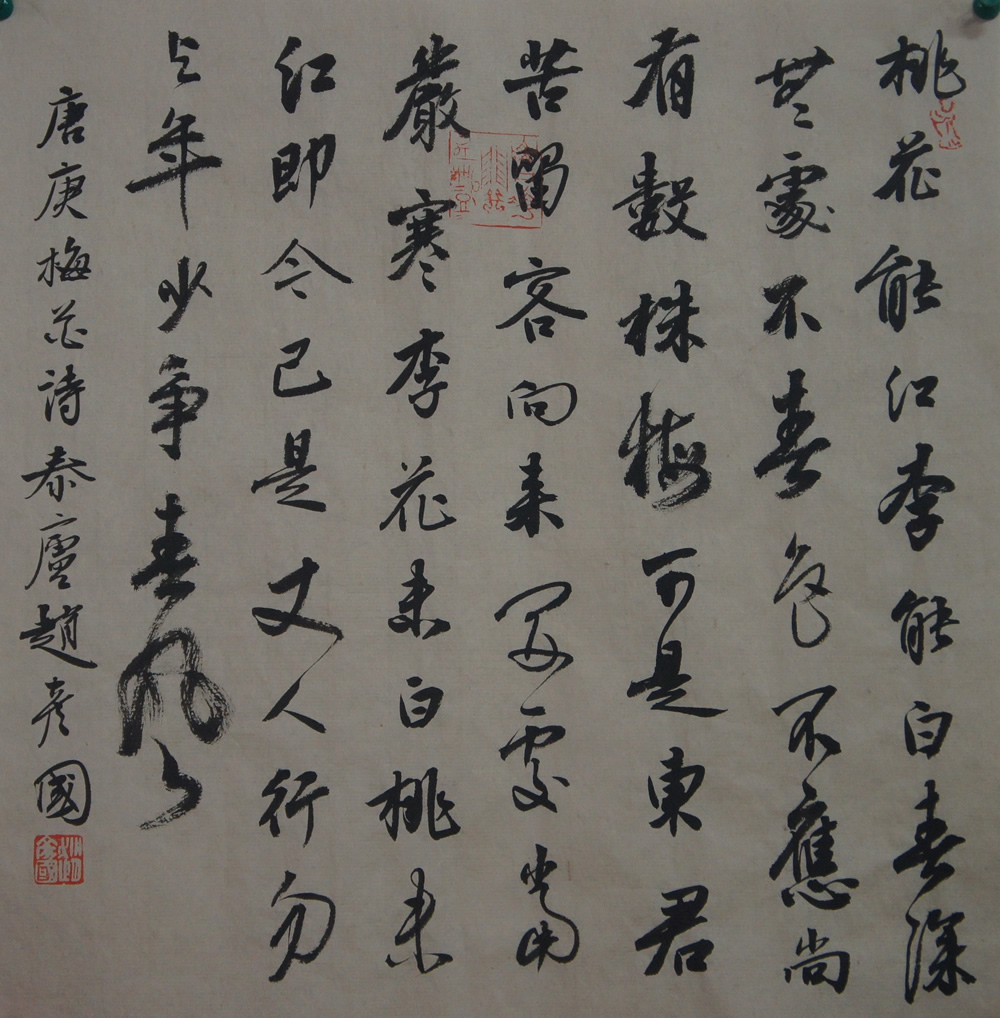 桃花能紅李能白春深
無處不春色不應尚
有數株梅可是東君
苦留客向来開處當
嚴寒李花未白桃未
紅即今已是丈人行勿
与年少爭春風
唐庚梅花詩泰廬趙彥國